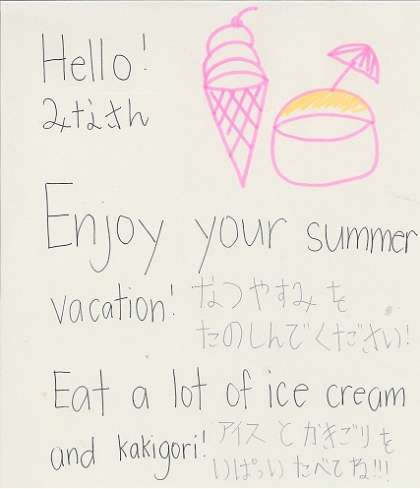 Hello!
みなさん
Enjoy your summer
vacation! なつやすみを
たのしんでください!
Eat a lot of ice cream
and kakigori! アイスとかきごりを
いぱっいたべてね!!!